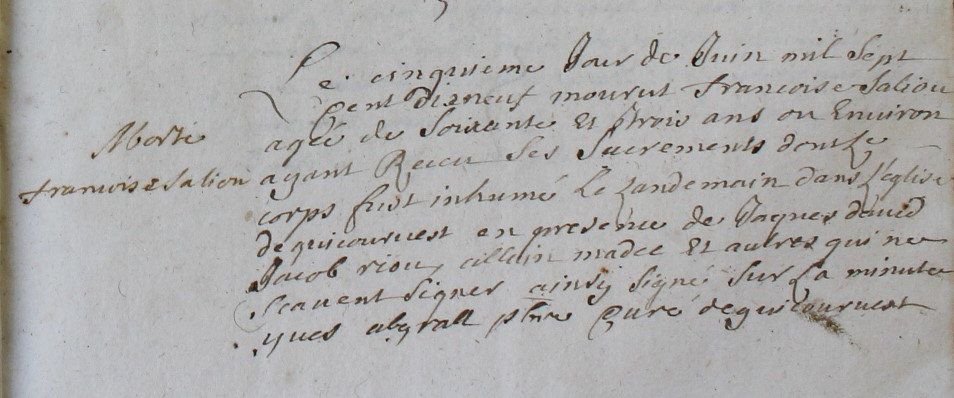 Morte
francoise Saliou
Le cinquieme Jour de Juin mil sept
Cent dizneuf mourut francoise Saliou
agée de Soixante Et Trois ans ou Environ
ayant Recu Ses Sacrements dont Le
corps fust inhumé Le Landemain dans L'église
de guicourvest en presence de Jaques david
Jacob riou, allain madec Et autres qui ne
scavent signer ainsy signé Sur La minute
yves abgrall ptre Curé de guicourvest